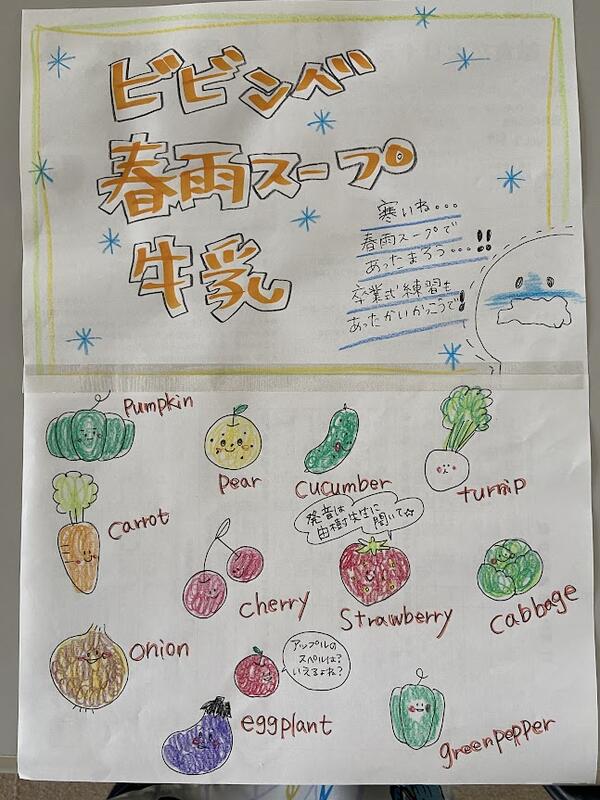 ビビンバ
春雨スープ
牛乳
寒いね・・・
春雨スープで
あったまろう・・・!!
卒業式練習も
あったかいかっこうで!
pumpkin
pear
cucumber
turnip
carrot
発音は
由樹先生に
聞いて☆
cherry
Strawberry
cabbage
onion
アップルの
スペルは?
いえるよね?
eggplant
greenpepper